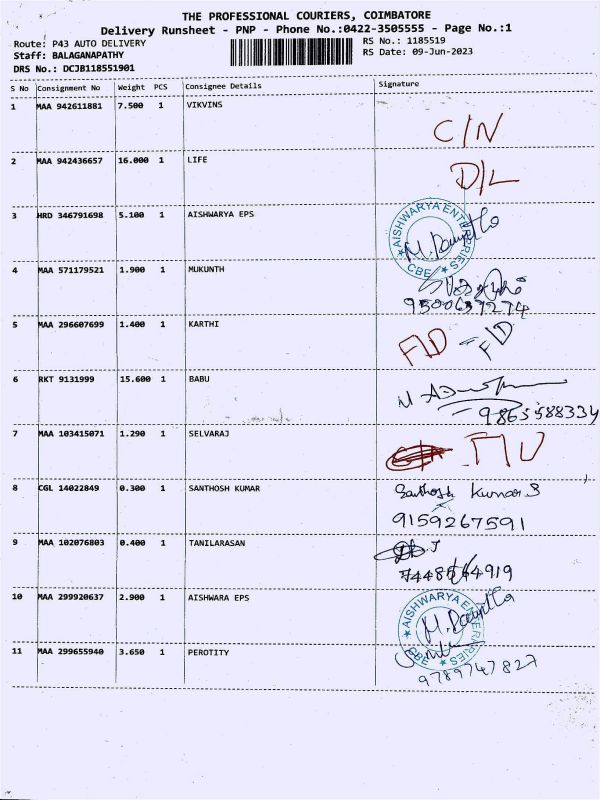 THE PROFESSIONAL COURIERS, COIMBATORE
Delivery Runsheet - PNP - Phone No.:0422-3505555 - Page No.:1
Route: P43 AUTO DELIVERY RS No.: 1185519
Staff: BALAGANAPATHY RS Date: 09-Jun-2023
DRS No.: DCJB118551901
S No Consignment No Weight PCS Consignee Details Signature
1 MAA 942611881 7.500 1 VIKVINS
C/N
2 MAA 942436657 16.000 1 LIFE
D/L
3 HRD 346791698 5.100 1 AISHWARYA EPS
AISHWARYA ENTERPRISES
CBE
4 MAA 571179521 1.900 1 MUKUNTH
9500637274
5 MAA 296607699 1.400 1 KARTHI
F/D - F/D
6 RKT 9131999 15.600 1 BABU
9865588334
7 MAA 103415071 1.290 1 SELVARAJ
8 CGL 14022849 0.300 1 SANTHOSH KUMAR
Santhosh Kumar S
9159267591
9 MAA 102076803 0.400 1 TANILARASAN
10 MAA 299920637 2.900 1 AISHWARA EPS
AISHWARYA ENTERPRISES
CBE
11 MAA 299655940 3.650 1 PEROTITY
9789747827